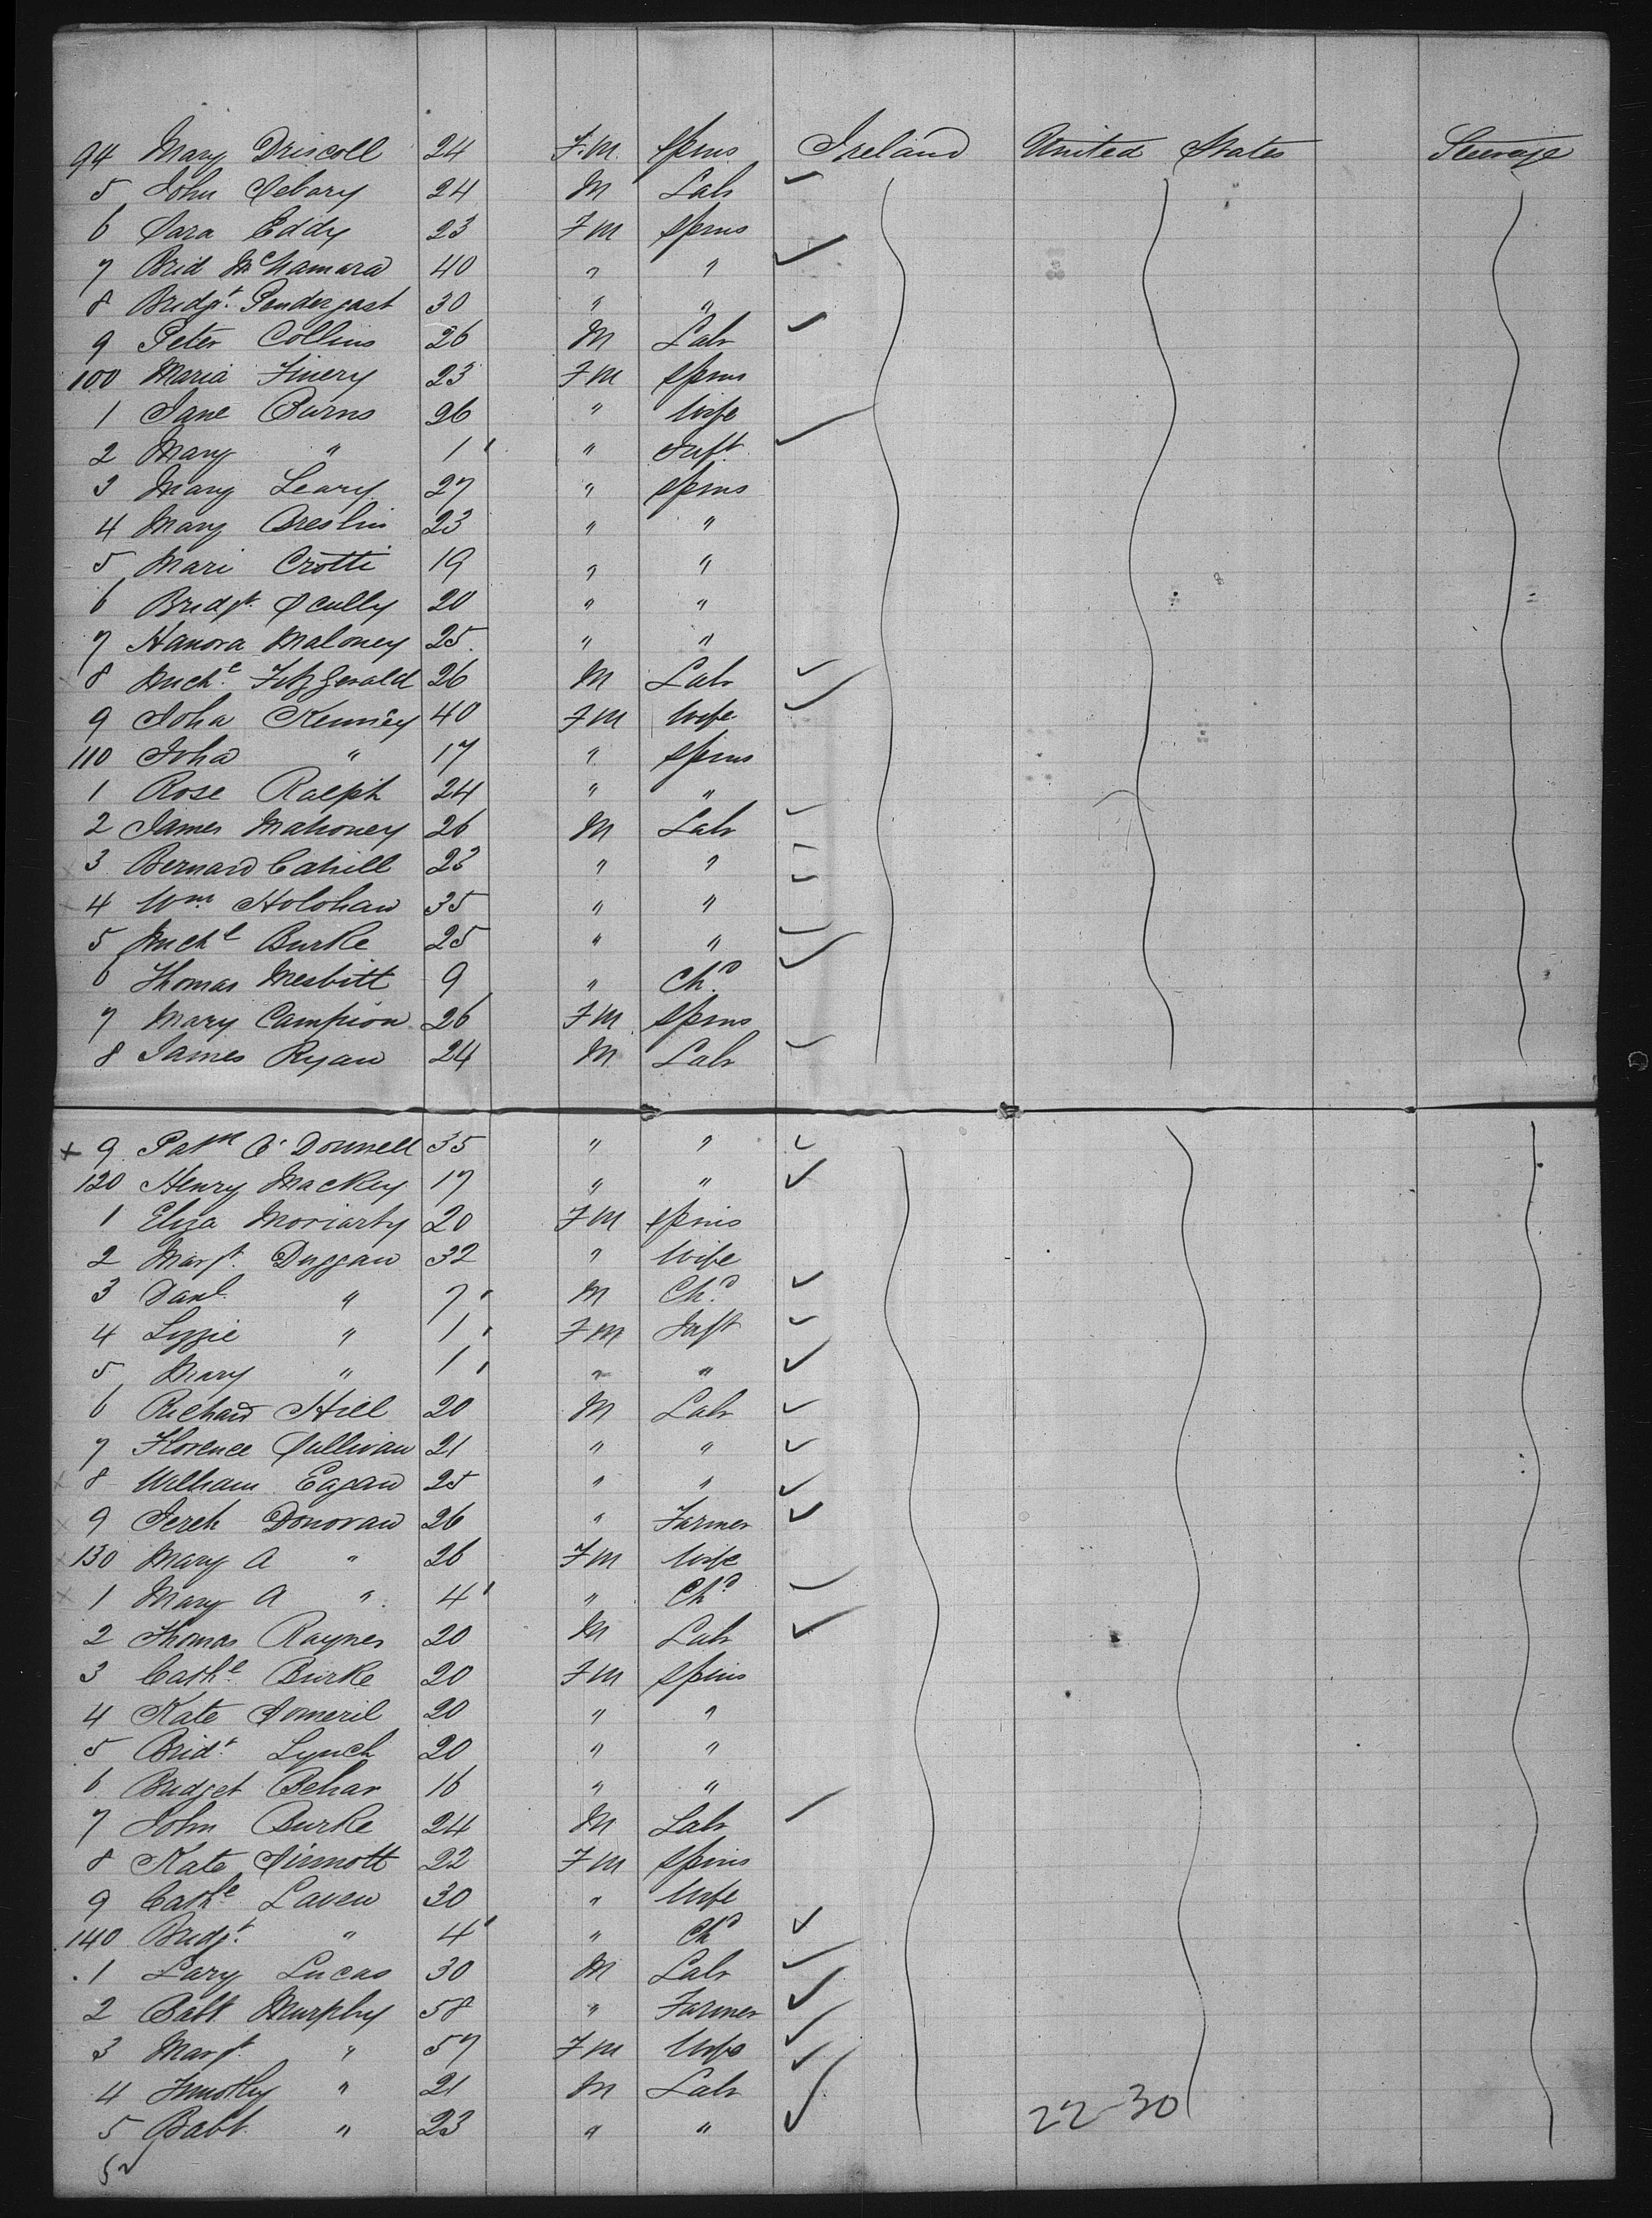 94 Mary Driscoll 24 F.M. Spins Ireland United States Steerage
5 John Debary 24 M Labr
6 Sara Eddy 23 F M Spins
7 Brid McNamara 40 " "
8 Bridgt. Pendergast 30 " "
9 Peter Collins 26 M Labr
100 Maria Finery 23 F M Spins
1 Jane Burns 26 " Wife
2 Mary " 1 " Inft
3 Mary Leary 27 " Spins
4 Mary Breslin 23 " "
5 Mari Crotti 19 " "
6 Bridgt. Scully 20 " "
7 Hanora Maloney 25 " "
8 Michl. FitzGerald 26 M Labr
9 Joha Kenney 40 F M Wife
110 Joha " 17 " Spins
1 Rose Ralph 24 " "
2 James Mahoney 26 M Labr
3 Bernard Cahill 23 " "
4 Wm. Holohan 35 " "
5 Michl Burke 25 " "
6 Thomas Nesbitt 9 " Chd.
7 Mary Campion 26 F M Spins
8 James Ryan 24 M Labr
x 9 Patk O'Donnell 35 " "
120 Henry Mackey 17 " "
1 Eliza Moriarty 20 F M Spins
2 Margt. Duggan 32 " Wife
3 Danl. " 7 M Chd.
4 Lizzie " 1 F M Inft
5 Mary " 1 " "
6 Richard Hill 20 M Labr
7 Florence Sullivan 21 " "
x 8 William Eagan 25 " "
x 9 Jereh Donovan 26 " Farmer
x 130 Mary A " 26 F M Wife
x 1 Mary A " 4 " Chd
2 Thomas Raynes 20 M Labr
3 Cathe. Burke 20 F M Spins
4 Kate Someril 20 " "
5 Bridt. Lynch 20 " "
6 Bridget Behar 16 " "
7 John Burke 24 M Labr
8 Kate Sinnott 22 F M Spins
9 Cathe Laven 30 " Wife
140 Bridgt. " 4 " Chd
1 Lary Lucas 30 M Labr
2 Batt Murphy 58 " Farmer
3 Margt. " 57 F M Wife
4 Timothy " 21 M Labr
5 Batt. " 23 " "
22-30
52